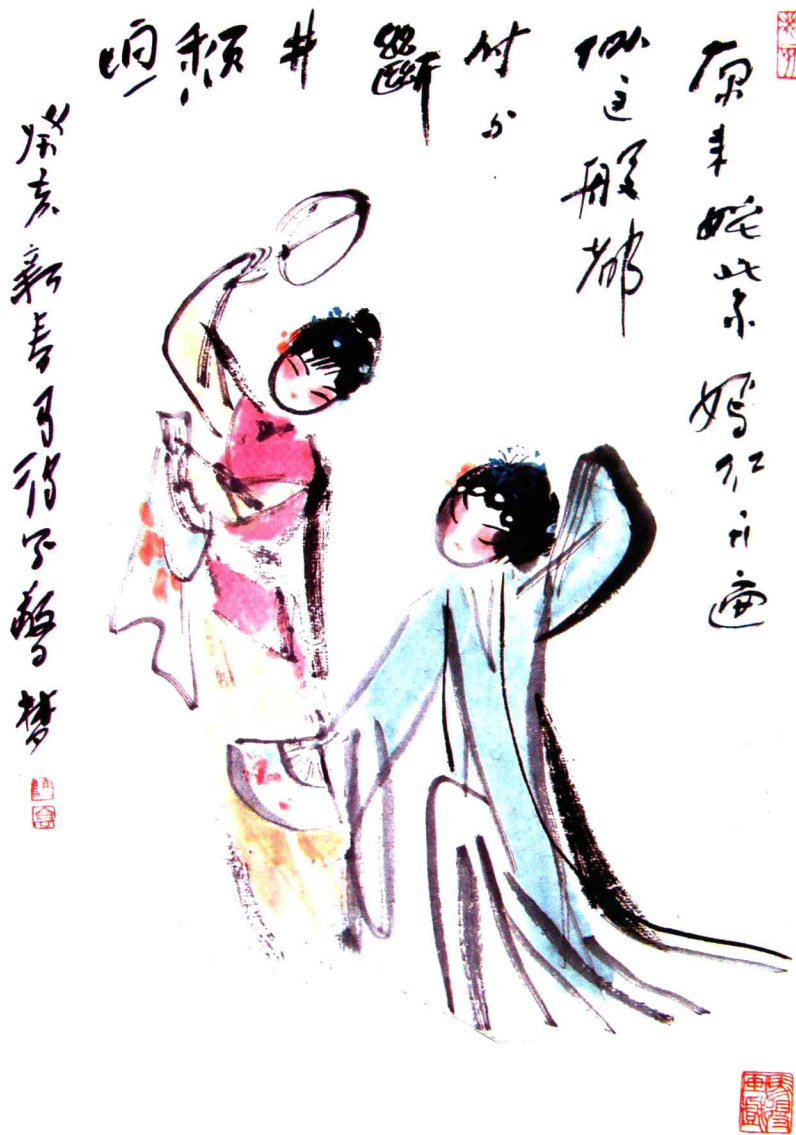 原来姹紫嫣红开遍
似这般都
付与
斷
井
頹
垣
癸亥新春马得写驚梦